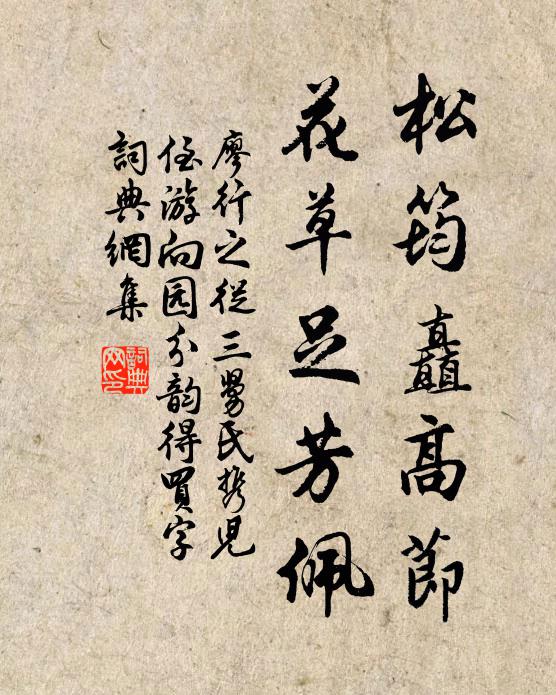 松筠矗高節
花草足芳佩
廖行之從三舅氏携児
侄游向园分韵得買字
詞典網集
詞典網印